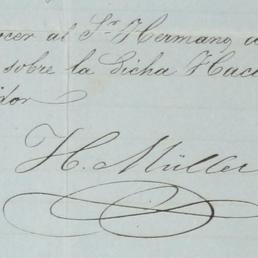 ocer al Sr Hermano a
sobre la Dicha Hace
idor
H. Müller